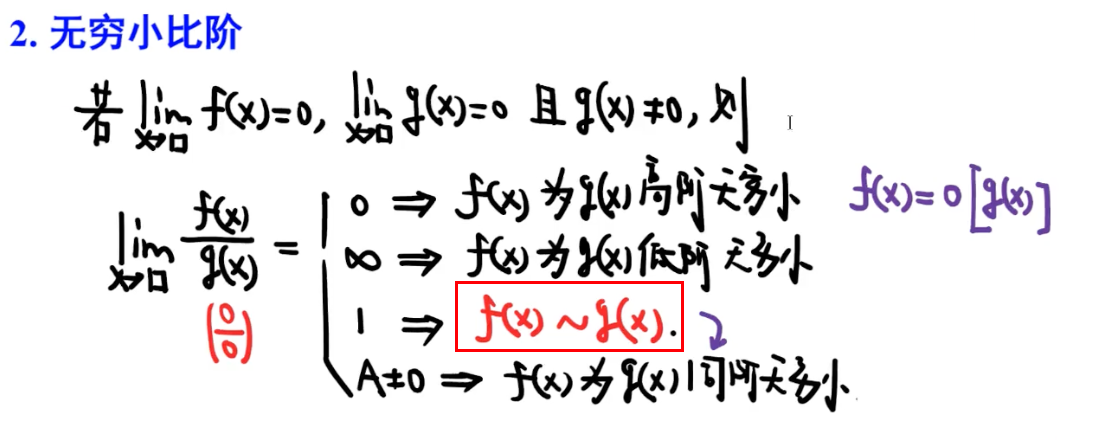 2. 无穷小比阶
若 lim x→□ f(x)=0, lim x→□ g(x)=0 且 g(x)≠0, 则
lim x→□ f(x)/g(x) = { 0 ⇒ f(x) 为 g(x) 高阶无穷小 f(x)=o[g(x)]
∞ ⇒ f(x) 为 g(x) 低阶无穷小
(0/0) 1 ⇒ f(x) ~ g(x).
A≠0 ⇒ f(x) 为 g(x) 同阶无穷小.